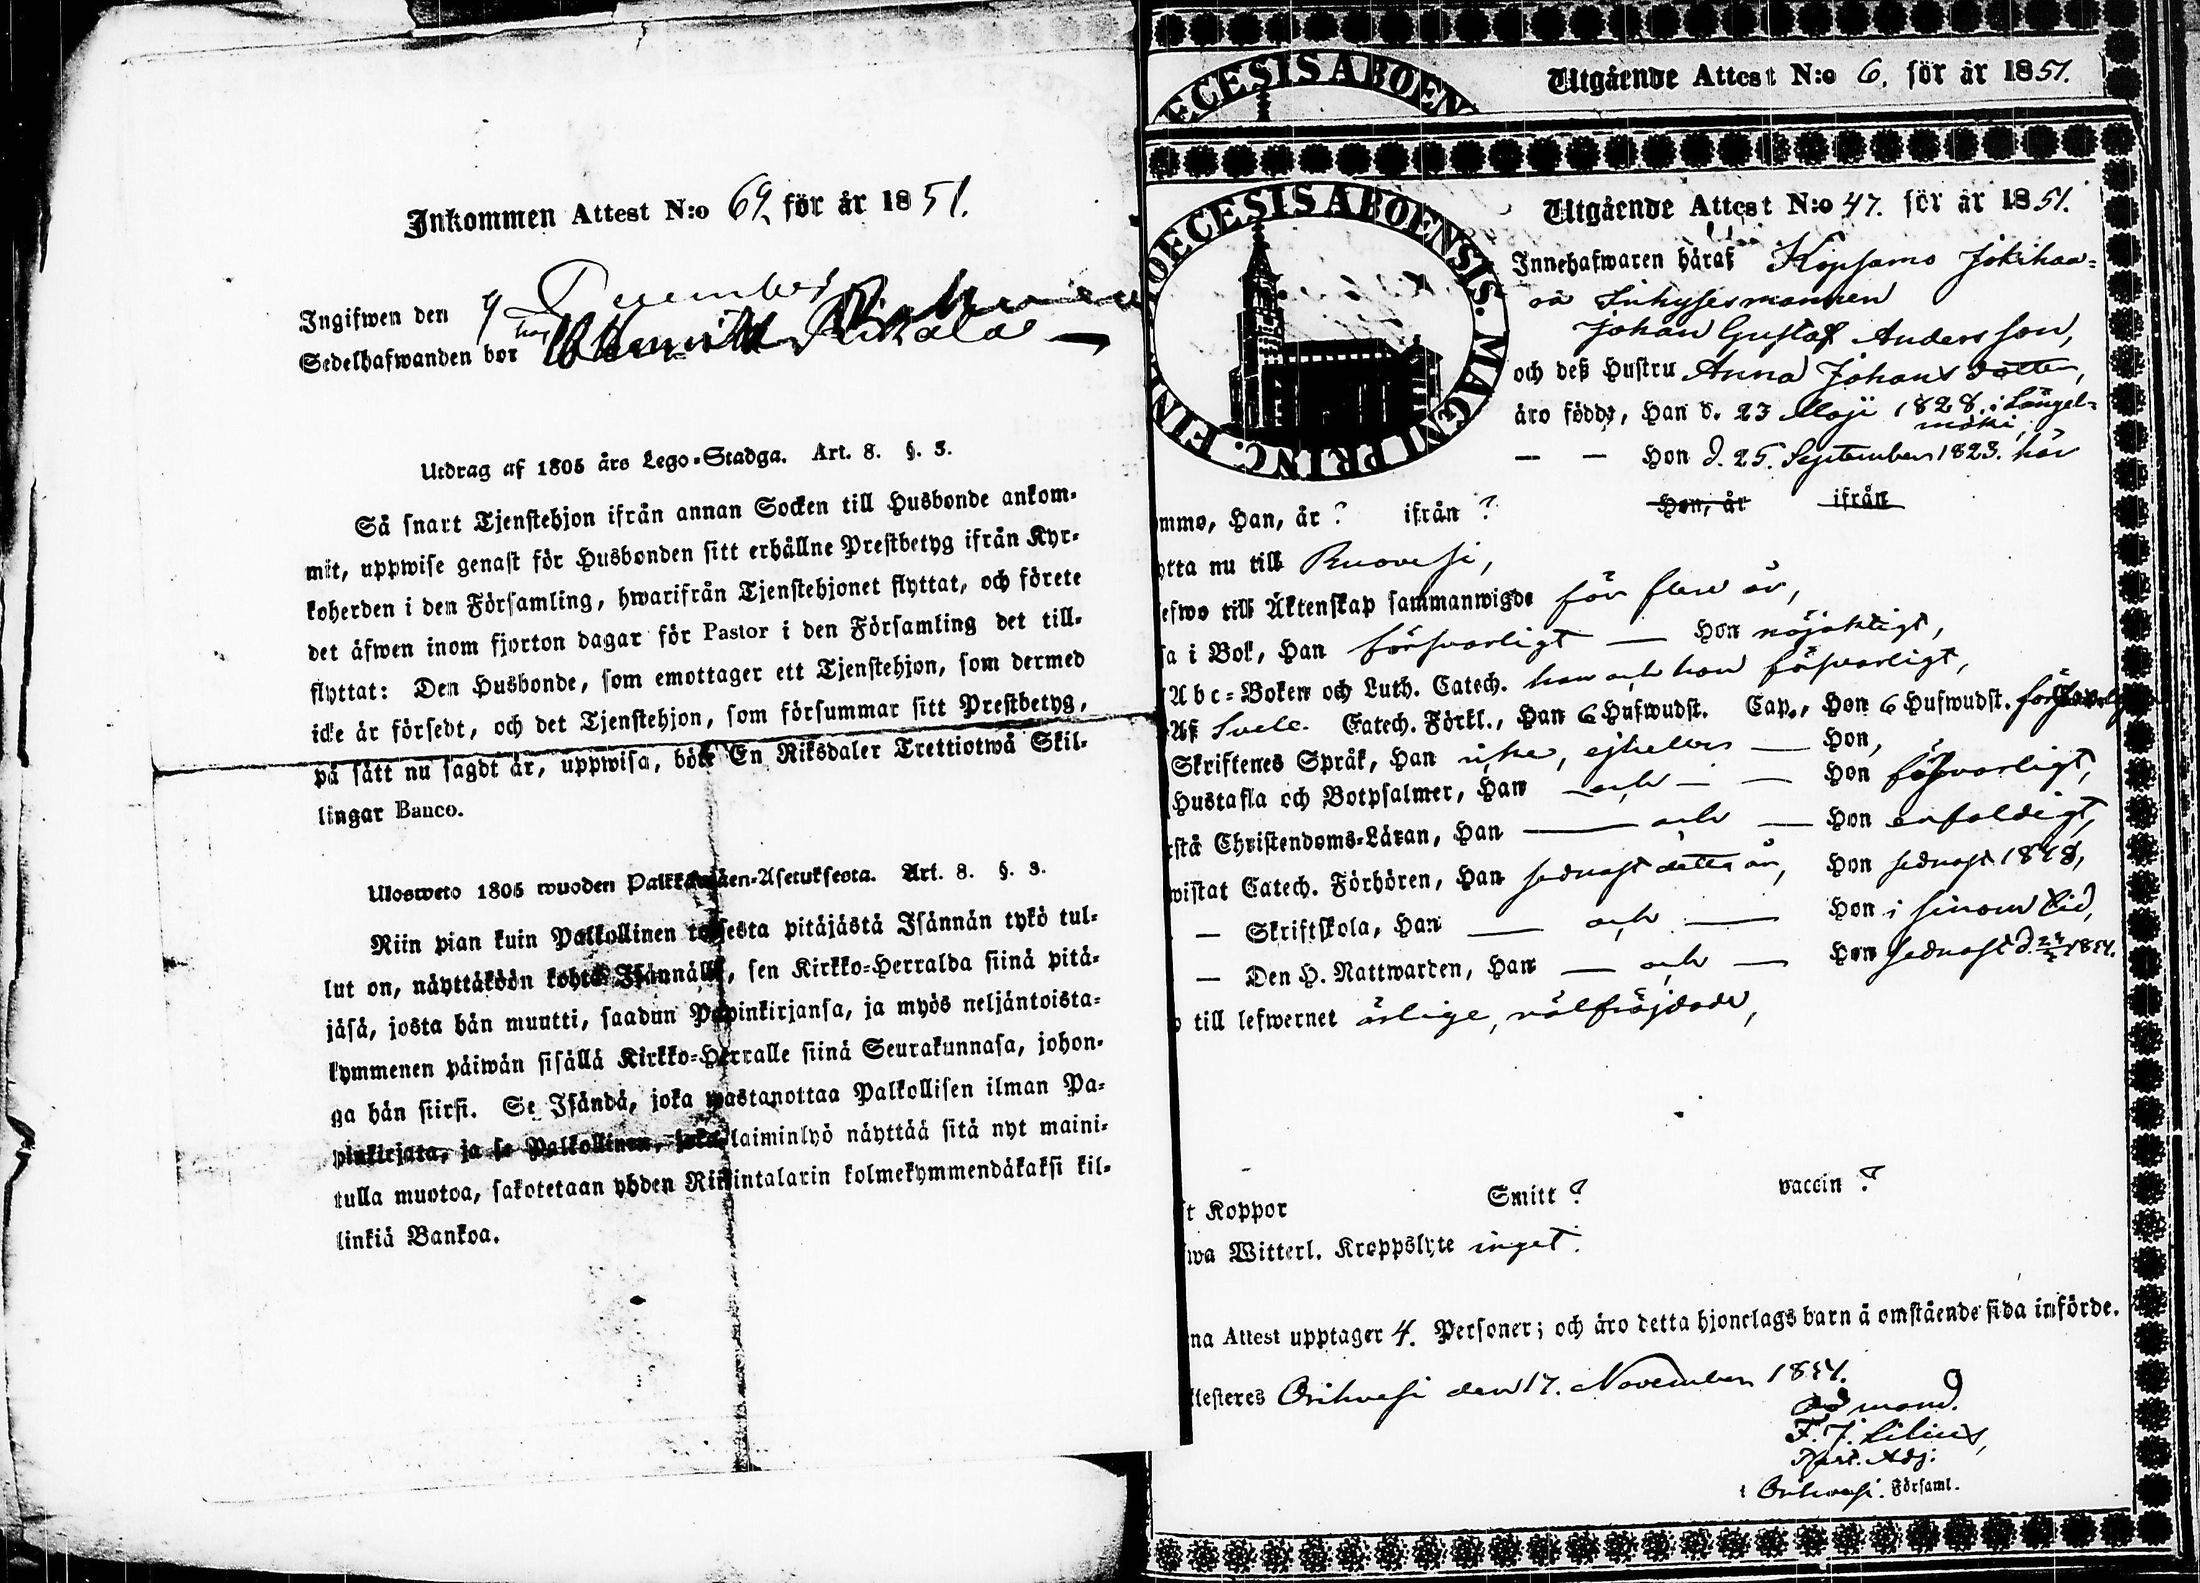 Inkommen Attest N:o 69 för år 1851.
Ingifwen den 4 December
Sedelhafwanden bor
Utdrag af 1805 års Lego-Stadga. Art. 8. §. 3.
Så snart Tjenstehjon ifrån annan Socken till Husbonde ankom-
mit, uppwise genast för Husbonden sitt erhållne Prestbetyg ifrån Kyr-
koherden i den Församling, hwarifrån Tjenstehjonet flyttat, och förete
det äfwen inom fjorton dagar för Pastor i den Församling det till-
flyttat: Den Husbonde, som emottager ett Tjenstehjon, som dermed
icke är försedt, och det Tjenstehjon, som försummar sitt Prestbetyg,
på sätt nu sagdt är, uppwisa, böte En Riksdaler Trettiotwå Skil-
lingar Banco.
Ulosweto 1805 wuoden Palkkawäen-Asetuksesta. Art. 8. §. 3.
Niin pian kuin Palkollinen toisesta pitäjästä Isännän tykö tul-
lut on, näyttäköön kohta Isännälle, sen Kirkko-Herralda siinä pitä-
jäsä, josta hän muutti, saadun Papinkirjansa, ja myös neljäntoista-
kymmenen päiwän sisällä Kirkko-Herralle siinä Seurakunnasa, johon-
ga hän siirsi. Se Isändä, joka wastanottaa Palkollisen ilman Pa-
pinkirjata, ja se Palkollinen, joka laiminlyö näyttää sitä nyt maini-
tulla muotoa, sakotetaan yhden Riikintalarin kolmekymmendäkaksi kil-
linkiä Bankoa.
ECESIS ABOEN
Utgående Attest N:o 6. för år 1851.
DIOECESIS ABOENSIS. MAGNI PRINC. FIN
Utgående Attest N:o 47. för år 1851.
Innehafwaren häraf Kopsamo Jokihaa-
ra Inhysesmannen
Johan Gustaf Andersson,
och deß Hustru Anna Johansdotter,
äro födde, Han d. 23 Maji 1828. i Längel-
mäki,
— — Hon d. 25. September 1823. här
ommo, Han, år ? ifrån ? Hon, år ifrån
ytta nu till Ruovesi,
efwo till Äktenskap sammanwigde för flere år,
sa i Bok, Han försvarligt — Hon nöjaktigt,
Abc-Boken och Luth. Catech. han och hon försvarligt,
Af Sveb. Catech. Förkl., Han 6 Hufwudst. Cap., Hon 6 Hufwudst.
Skriftenes Språk, Han icke, ejheller — Hon,
Hustafla och Botpsalmer, Han — och — — Hon försvarligt,
rstå Christendoms-Läran, Han — och — Hon enfaldigt,
wistat Catech. Förhören, Han sednast detta år, Hon sednast 1848,
— Skriftskola, Han — och — Hon i sinom tid,
— Den H. Nattwarden, Han — och — Hon sednast d. 1851.
till lefwernet ärlige, välfräjdade,
t Koppor Smitt ? vaccin ?
wa Witterl. Kroppslyte inget.
na Attest upptager 4. Personer; och äro detta hjonelags barn å omstående sida införde.
ttesteres Orihvesi den 17. November 1851.
F. J. Lilius,
Past. Adj.
i Orihvesi. Församl.